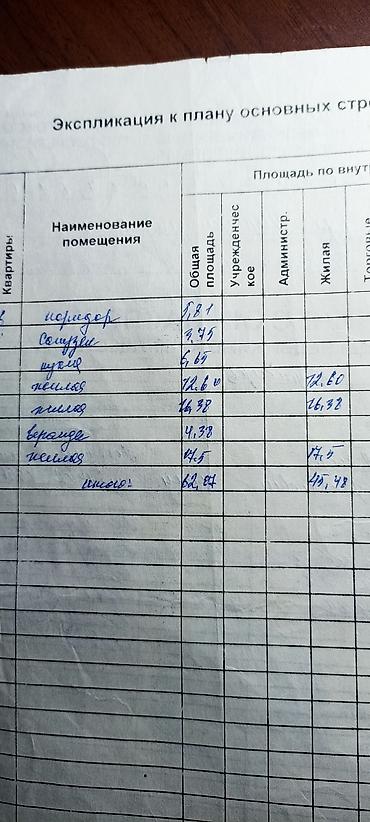 Экспликация к плану основных стр
Площадь по внут
Квартиры
Наименование
помещения
Общая
площадь
Учрежденчес
кое
Администр.
Жилая
Торговые
коридор 5,81
Санузел 3,75
кухня 6,65
жилая 12.60 12.60
жилая 16,38 16,38
веранда 4,38
жилая 17.5 17,5
итого: 62,07 45,48